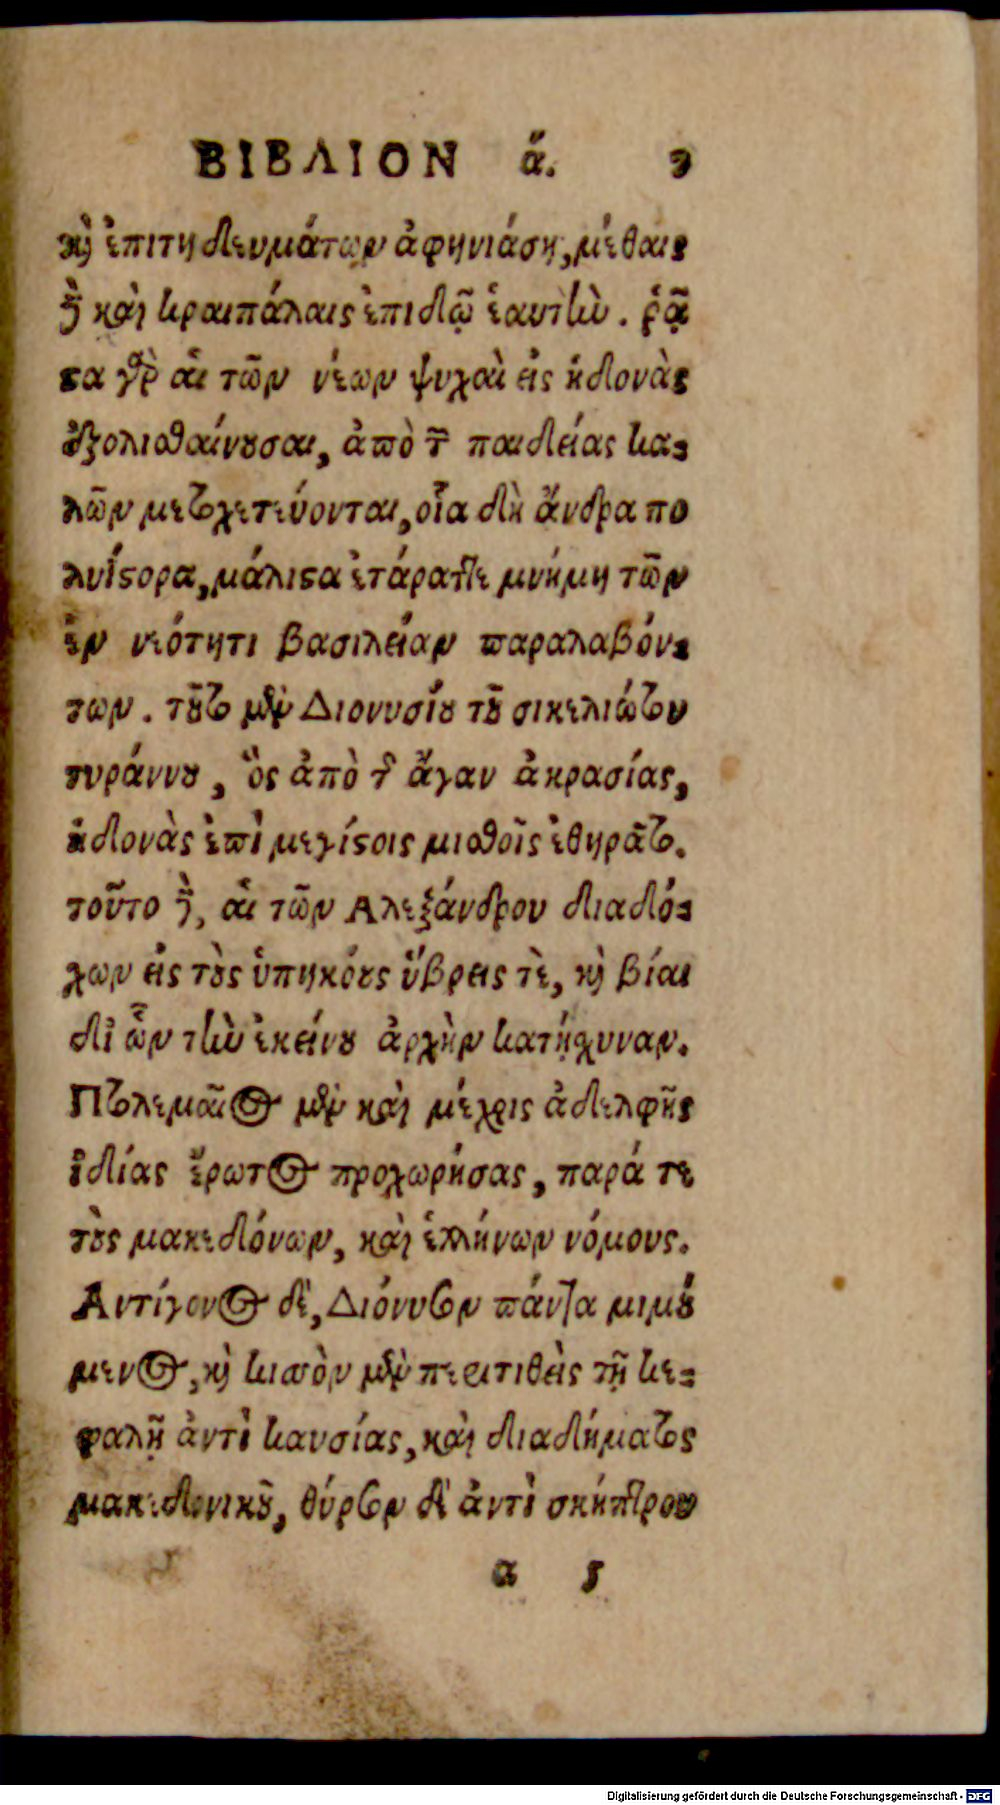 ΒΙΒΛΙΟΝ ἄ. 9
καὶ ἐπιτηδευμάτων ἀφηνιάσῃ, μέθαις
δὲ καὶ κραιπάλαις ἐπιδῷ ἑαυτὴν. ῥᾷ
στα γὰρ αἱ τῶν νέων ψυχαὶ εἰς ἡδονὰς
ἐξολισθαίνουσαι, ἀπὸ τῆς παιδείας κα-
λῶν μετοχετεύονται, οἷα δὴ ἄνδρα πο
λυΐστορα, μάλιστα ἐτάραττε μνήμη τῶν
ἐν νεότητι βασιλείαν παραλαβόν-
των. τοῦτο μὲν Διονυσίου τοῦ σικελιώτου
τυράννου, ὃς ἀπὸ τῆς ἄγαν ἀκρασίας,
ἡδονὰς ἐπὶ μεγίστοις μισθοῖς ἐθηρᾶτο.
τοῦτο δὲ, αἱ τῶν Αλεξάνδρου διαδό-
χων εἰς τοὺς ὑπηκόους ὕβρεις τὲ, καὶ βίαι
δι ὧν τὴν ἐκείνου ἀρχὴν κατῄχυναν.
Πτολεμαῖος μὲν καὶ μέχρις ἀδελφῆς
ἰδίας ἔρωτος προχωρήσας, παρά τε
τοὺς μακεδόνων, καὶ ἑλλήνων νόμους.
Αντίγονος δὲ, Διόνυσον πάντα μιμού
μενος, καὶ κισσὸν μὲν περιτιθεὶς τῇ κε-
φαλῇ ἀντὶ καυσίας, καὶ διαδήματος
μακεδονικοῦ, θύρσον δὲ ἀντὶ σκήπτρου
a 5
Digitalisierung gefördert durch die Deutsche Forschungsgemeinschaft - DFG